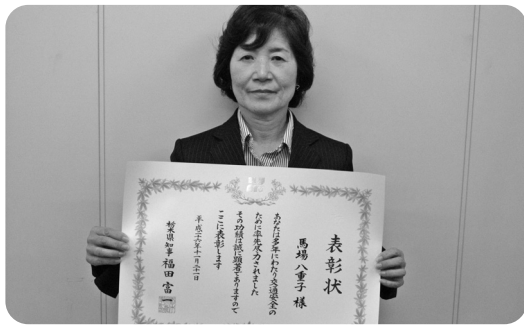 表彰状
馬場 八重子 様
あなたは多年にわたり交通安全の
ために率先尽力されました
その功績は誠に顕著でありますので
ここに表彰します
平成二十六年十一月二十一日
栃木県知事 福田 富一